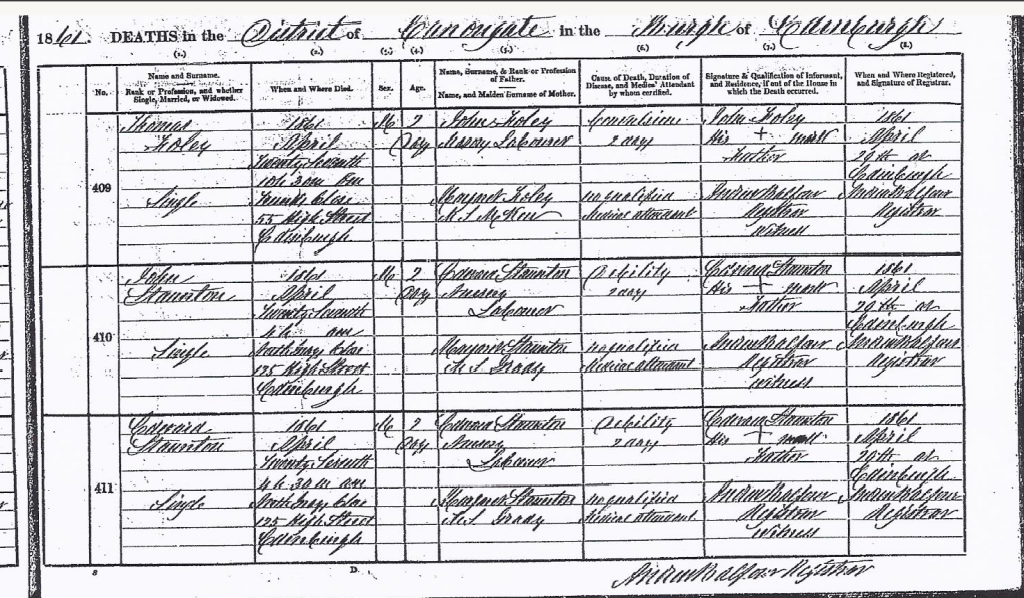 1861. DEATHS in the District of Canongate in the Burgh of Edinburgh
(1.) (2.) (3.) (4.) (5.) (6.) (7.) (8.)
No.
Name and Surname.
Rank or Profession, and whether
Single, Married, or Widowed.
When and Where Died.
Sex.
Age.
Name, Surname, & Rank or Profession
of Father.
Name, and Maiden Surname of Mother.
Cause of Death, Duration of
Disease, and Medical Attendant
by whom certified.
Signature & Qualification of Informant,
and Residence, if out of the House in
which the Death occurred.
When and Where Registered,
and Signature of Registrar.
409
Thomas
Foley
Single
1861
April
Twenty Seventh
10 h 30 m
55 High Street
Edinburgh
M
2
Days
John Foley
Labourer
Margaret Foley
M.S.
Convulsions
2 days
no qualified
Medical attendant
John Foley
His + mark
Father
Andrew Balfour
Registrar
Witness
1861
April
29th at
Edinburgh
Andrew Balfour
Registrar
410
John
Staunton
Single
1861
April
Twenty Seventh
4 h am
North Grays Close
125 High Street
Edinburgh
M
2
Days
Edward Staunton
Labourer
Margaret Staunton
M.S. Grady
Debility
2 days
no qualified
Medical attendant
Edward Staunton
His + mark
Father
Andrew Balfour
Registrar
Witness
1861
April
29th at
Edinburgh
Andrew Balfour
Registrar
411
Edward
Staunton
Single
1861
April
Twenty Seventh
4 h 30 m am
North Grays Close
125 High Street
Edinburgh
M
2
Days
Edward Staunton
Labourer
Margaret Staunton
M.S. Grady
Debility
2 days
no qualified
Medical attendant
Edward Staunton
His + mark
Father
Andrew Balfour
Registrar
Witness
1861
April
29th at
Edinburgh
Andrew Balfour
Registrar
D.
Andrew Balfour Registrar